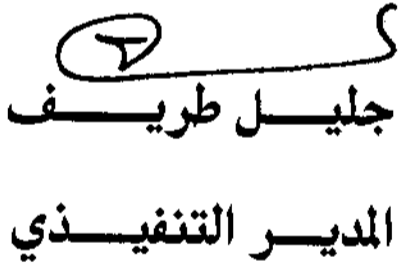 جليل طريف
المدير التنفيذي